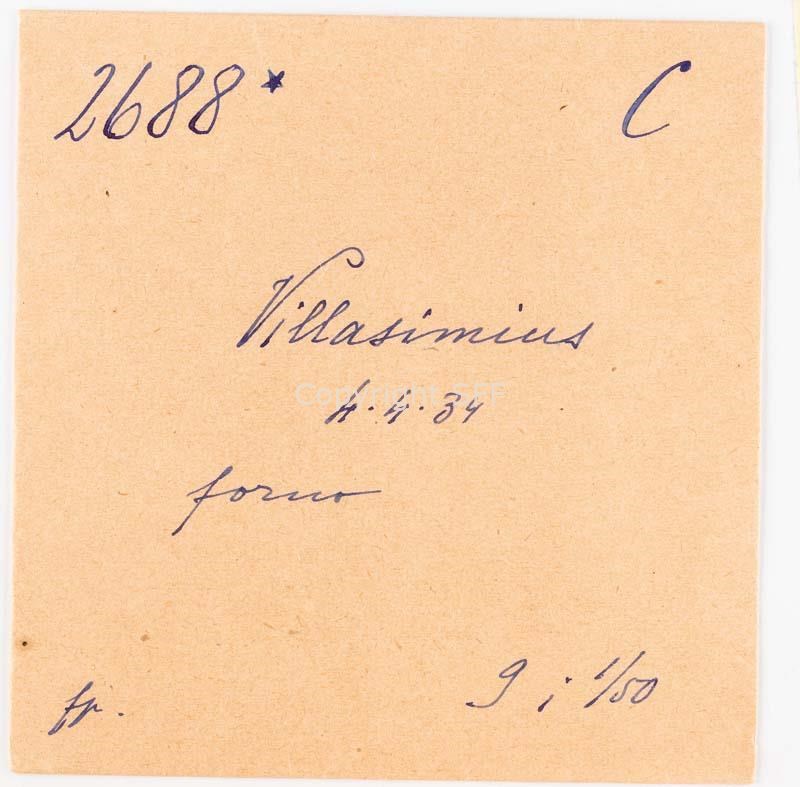 2688* C
Villasimius
4.4.34
forno
fr. 9 ; 1/50